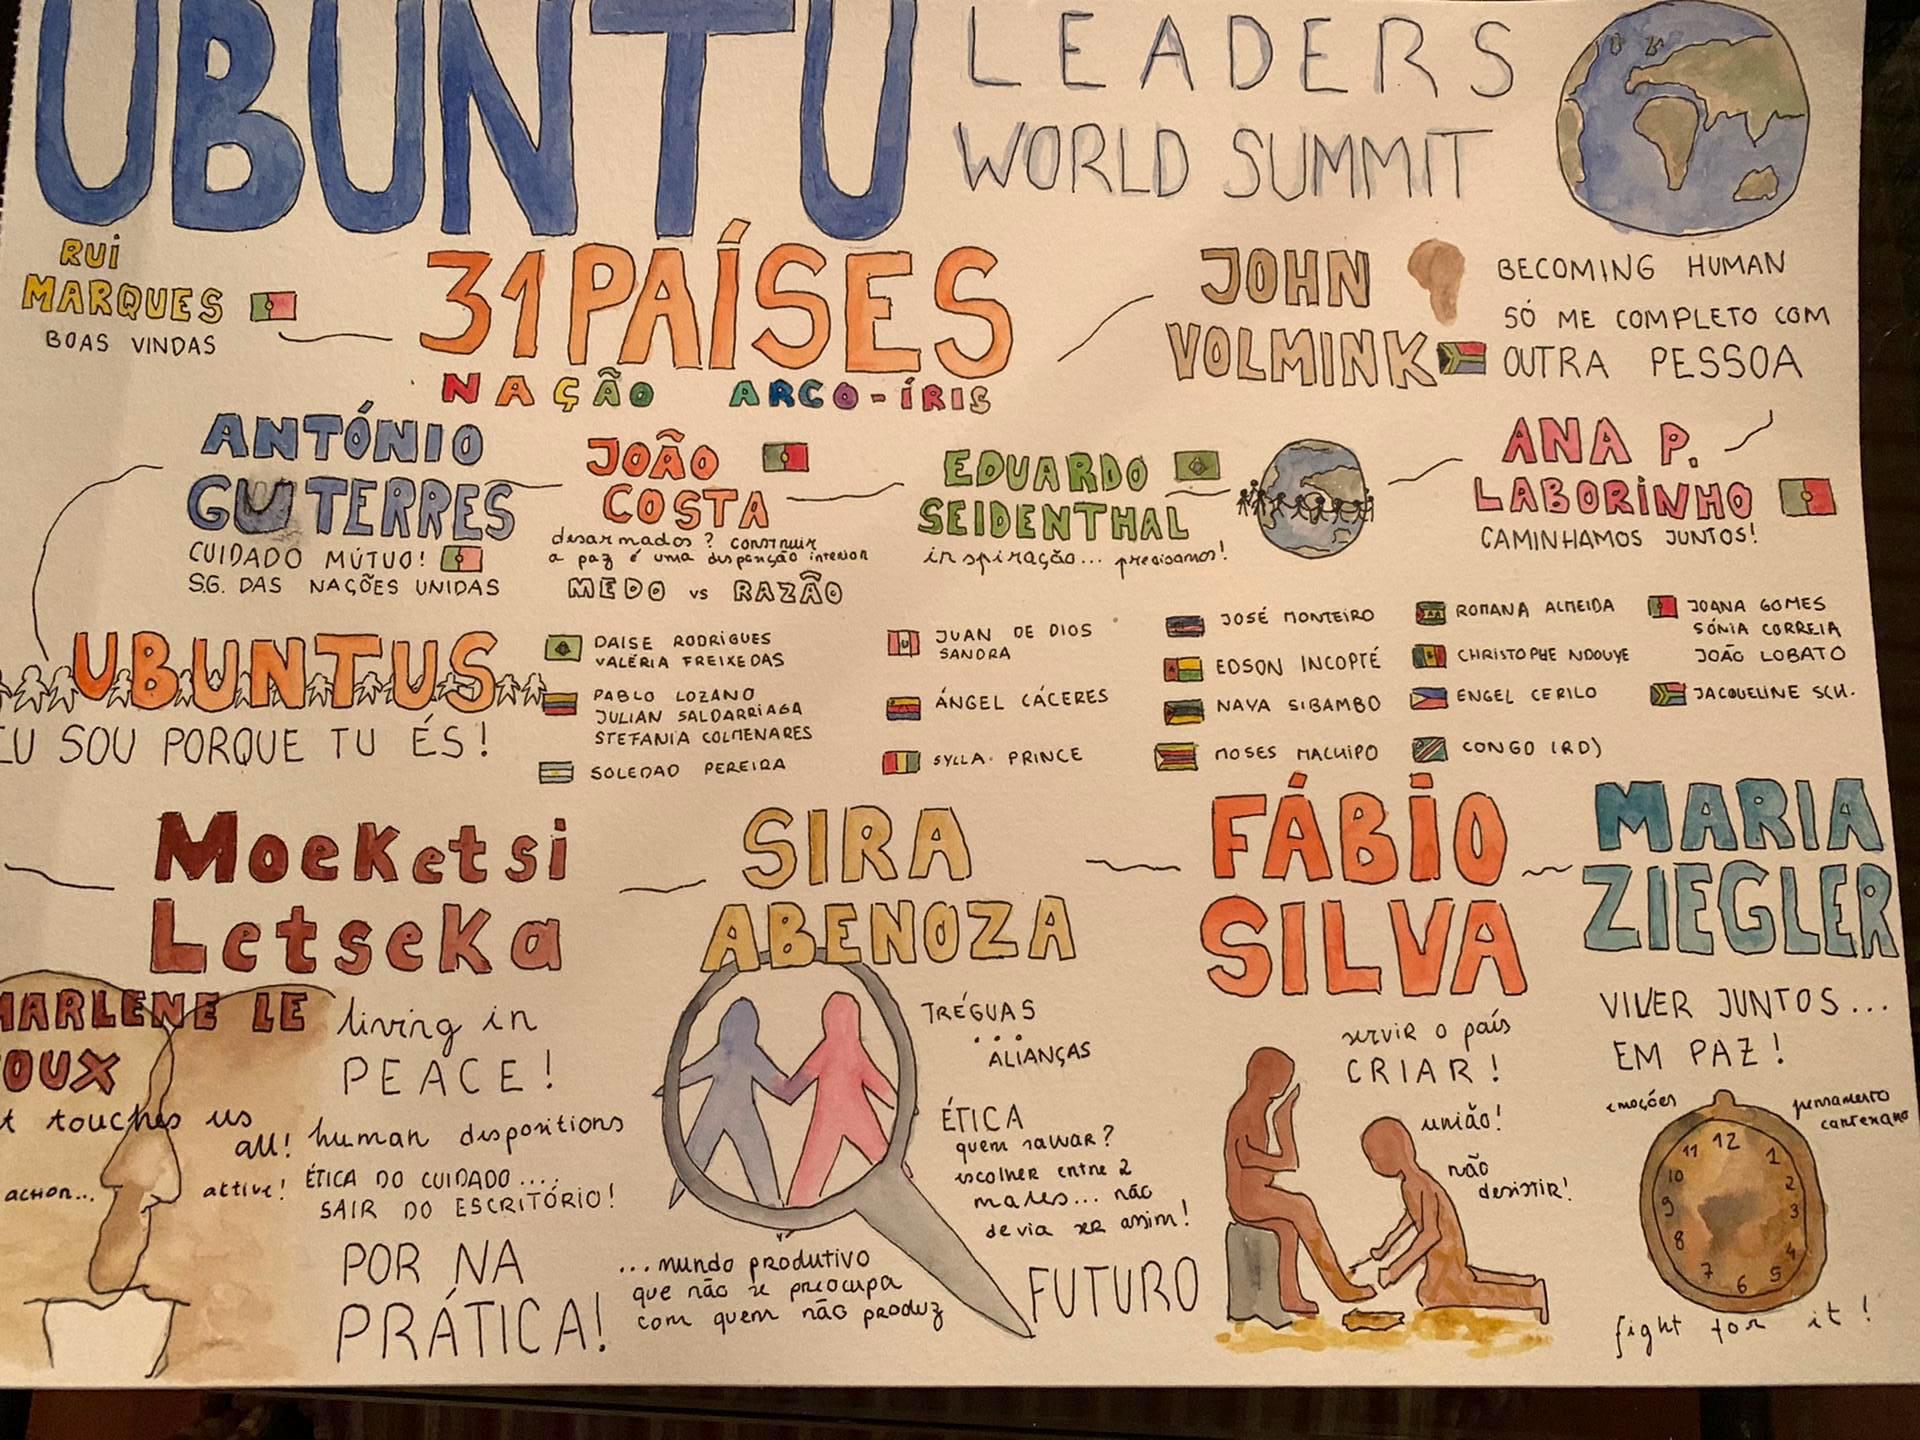 UBUNTU
LEADERS
WORLD SUMMIT
RUI
MARQUES
BOAS VINDAS
31 PAÍSES
NAÇÃO ARCO-ÍRIS
JOHN
VOLMINK
BECOMING HUMAN
SÓ ME COMPLETO COM
OUTRA PESSOA
ANTÓNIO
GUTERRES
CUIDADO MÚTUO!
S.G. DAS NAÇÕES UNIDAS
JOÃO
COSTA
desarmados? construir
a paz é uma disposição interior
MEDO vs RAZÃO
EDUARDO
SEIDENTHAL
inspiração... precisamos!
ANA P.
LABORINHO
CAMINHAMOS JUNTOS!
UBUNTUS
EU SOU PORQUE TU ÉS!
DAISE RODRIGUES
VALÉRIA FREIXEDAS
PABLO LOZANO
JULIAN SALDARRIAGA
STEFANIA COLMENARES
SOLEDAD PEREIRA
JUAN DE DIOS
SANDRA
ÁNGEL CÁCERES
SYLLA. PRINCE
JOSÉ MONTEIRO
EDSON INCOPTÉ
NAYA SIBAMBO
MOSES MACHIPO
ROMANA ALMEIDA
CHRISTOPHE NDOUYE
ENGEL CERILO
CONGO (RD)
JOANA GOMES
SÓNIA CORREIA
JOÃO LOBATO
JACQUELINE SCH.
Moeketsi
Letseka
living in
PEACE!
human dispositions
ÉTICA DO CUIDADO....
SAIR DO ESCRITÓRIO!
POR NA
PRÁTICA!
MARLENE LE
ROUX
touches us
all!
action...
active!
SIRA
ABENOZA
TRÉGUAS
...
ALIANÇAS
ÉTICA
quem salvar?
escolher entre 2
males... não
devia ser assim!
...mundo produtivo
que não se preocupa
com quem não produz
FUTURO
FÁBIO
SILVA
servir o país
CRIAR!
união!
não
desistir!
MARIA
ZIEGLER
VIVER JUNTOS...
EM PAZ!
emoções
pensamento
cartesiano
12
1
2
3
4
5
6
7
8
9
10
11
fight for it!